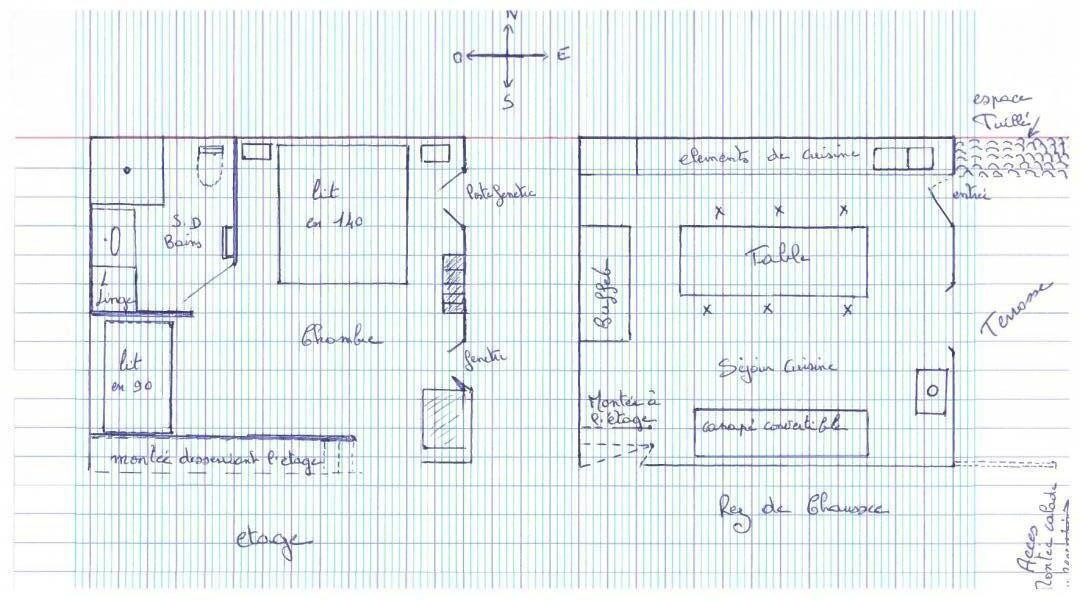 N
O E
S
espace
Tuillé
elements de cuisine
lit
en 140
Porte fenetre
entrée
S.D
Bains
Table
L
Linge
Buffet
Terrasse
Chambre
fenetre
lit
en 90
Séjour Cuisine
Montée à
l'étage
canapé convertible
montée desservant l'etage
Rez de Chaussee
etage
Acces
Montée calade